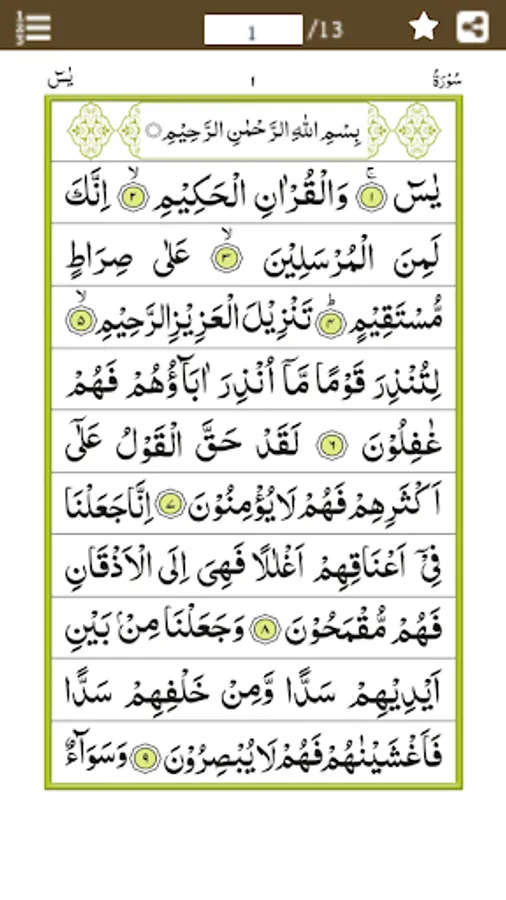 1 /13
سُوْرَةُ ١ يٰسٓ
بِسْمِ اللّٰهِ الرَّحْمٰنِ الرَّحِيْمِ
يٰسٓ ۚ‏﴿۱﴾ وَالْقُرْاٰنِ الْحَكِيْمِ ۙ‏﴿۲﴾ اِنَّكَ
لَمِنَ الْمُرْسَلِيْنَ ۙ‏﴿۳﴾ عَلٰى صِرَاطٍ
مُّسْتَقِيْمٍ ؕ‏﴿۴﴾ تَنْزِيْلَ الْعَزِيْزِ الرَّحِيْمِ ۙ‏﴿۵﴾
لِتُنْذِرَ قَوْمًا مَّاۤ اُنْذِرَ اٰبَآؤُهُمْ فَهُمْ
غٰفِلُوْنَ ﴿۶﴾ لَقَدْ حَقَّ الْقَوْلُ عَلٰٓى
اَكْثَرِهِمْ فَهُمْ لَا يُؤْمِنُوْنَ ﴿۷﴾ اِنَّا جَعَلْنَا
فِىْۤ اَعْنَاقِهِمْ اَغْلٰلًا فَهِىَ اِلَى الْاَذْقَانِ
فَهُمْ مُّقْمَحُوْنَ ﴿۸﴾ وَجَعَلْنَا مِنْۢ بَيْنِ
اَيْدِيْهِمْ سَدًّا وَّمِنْ خَلْفِهِمْ سَدًّا
فَاَغْشَيْنٰهُمْ فَهُمْ لَا يُبْصِرُوْنَ ﴿۹﴾ وَسَوَآءٌ